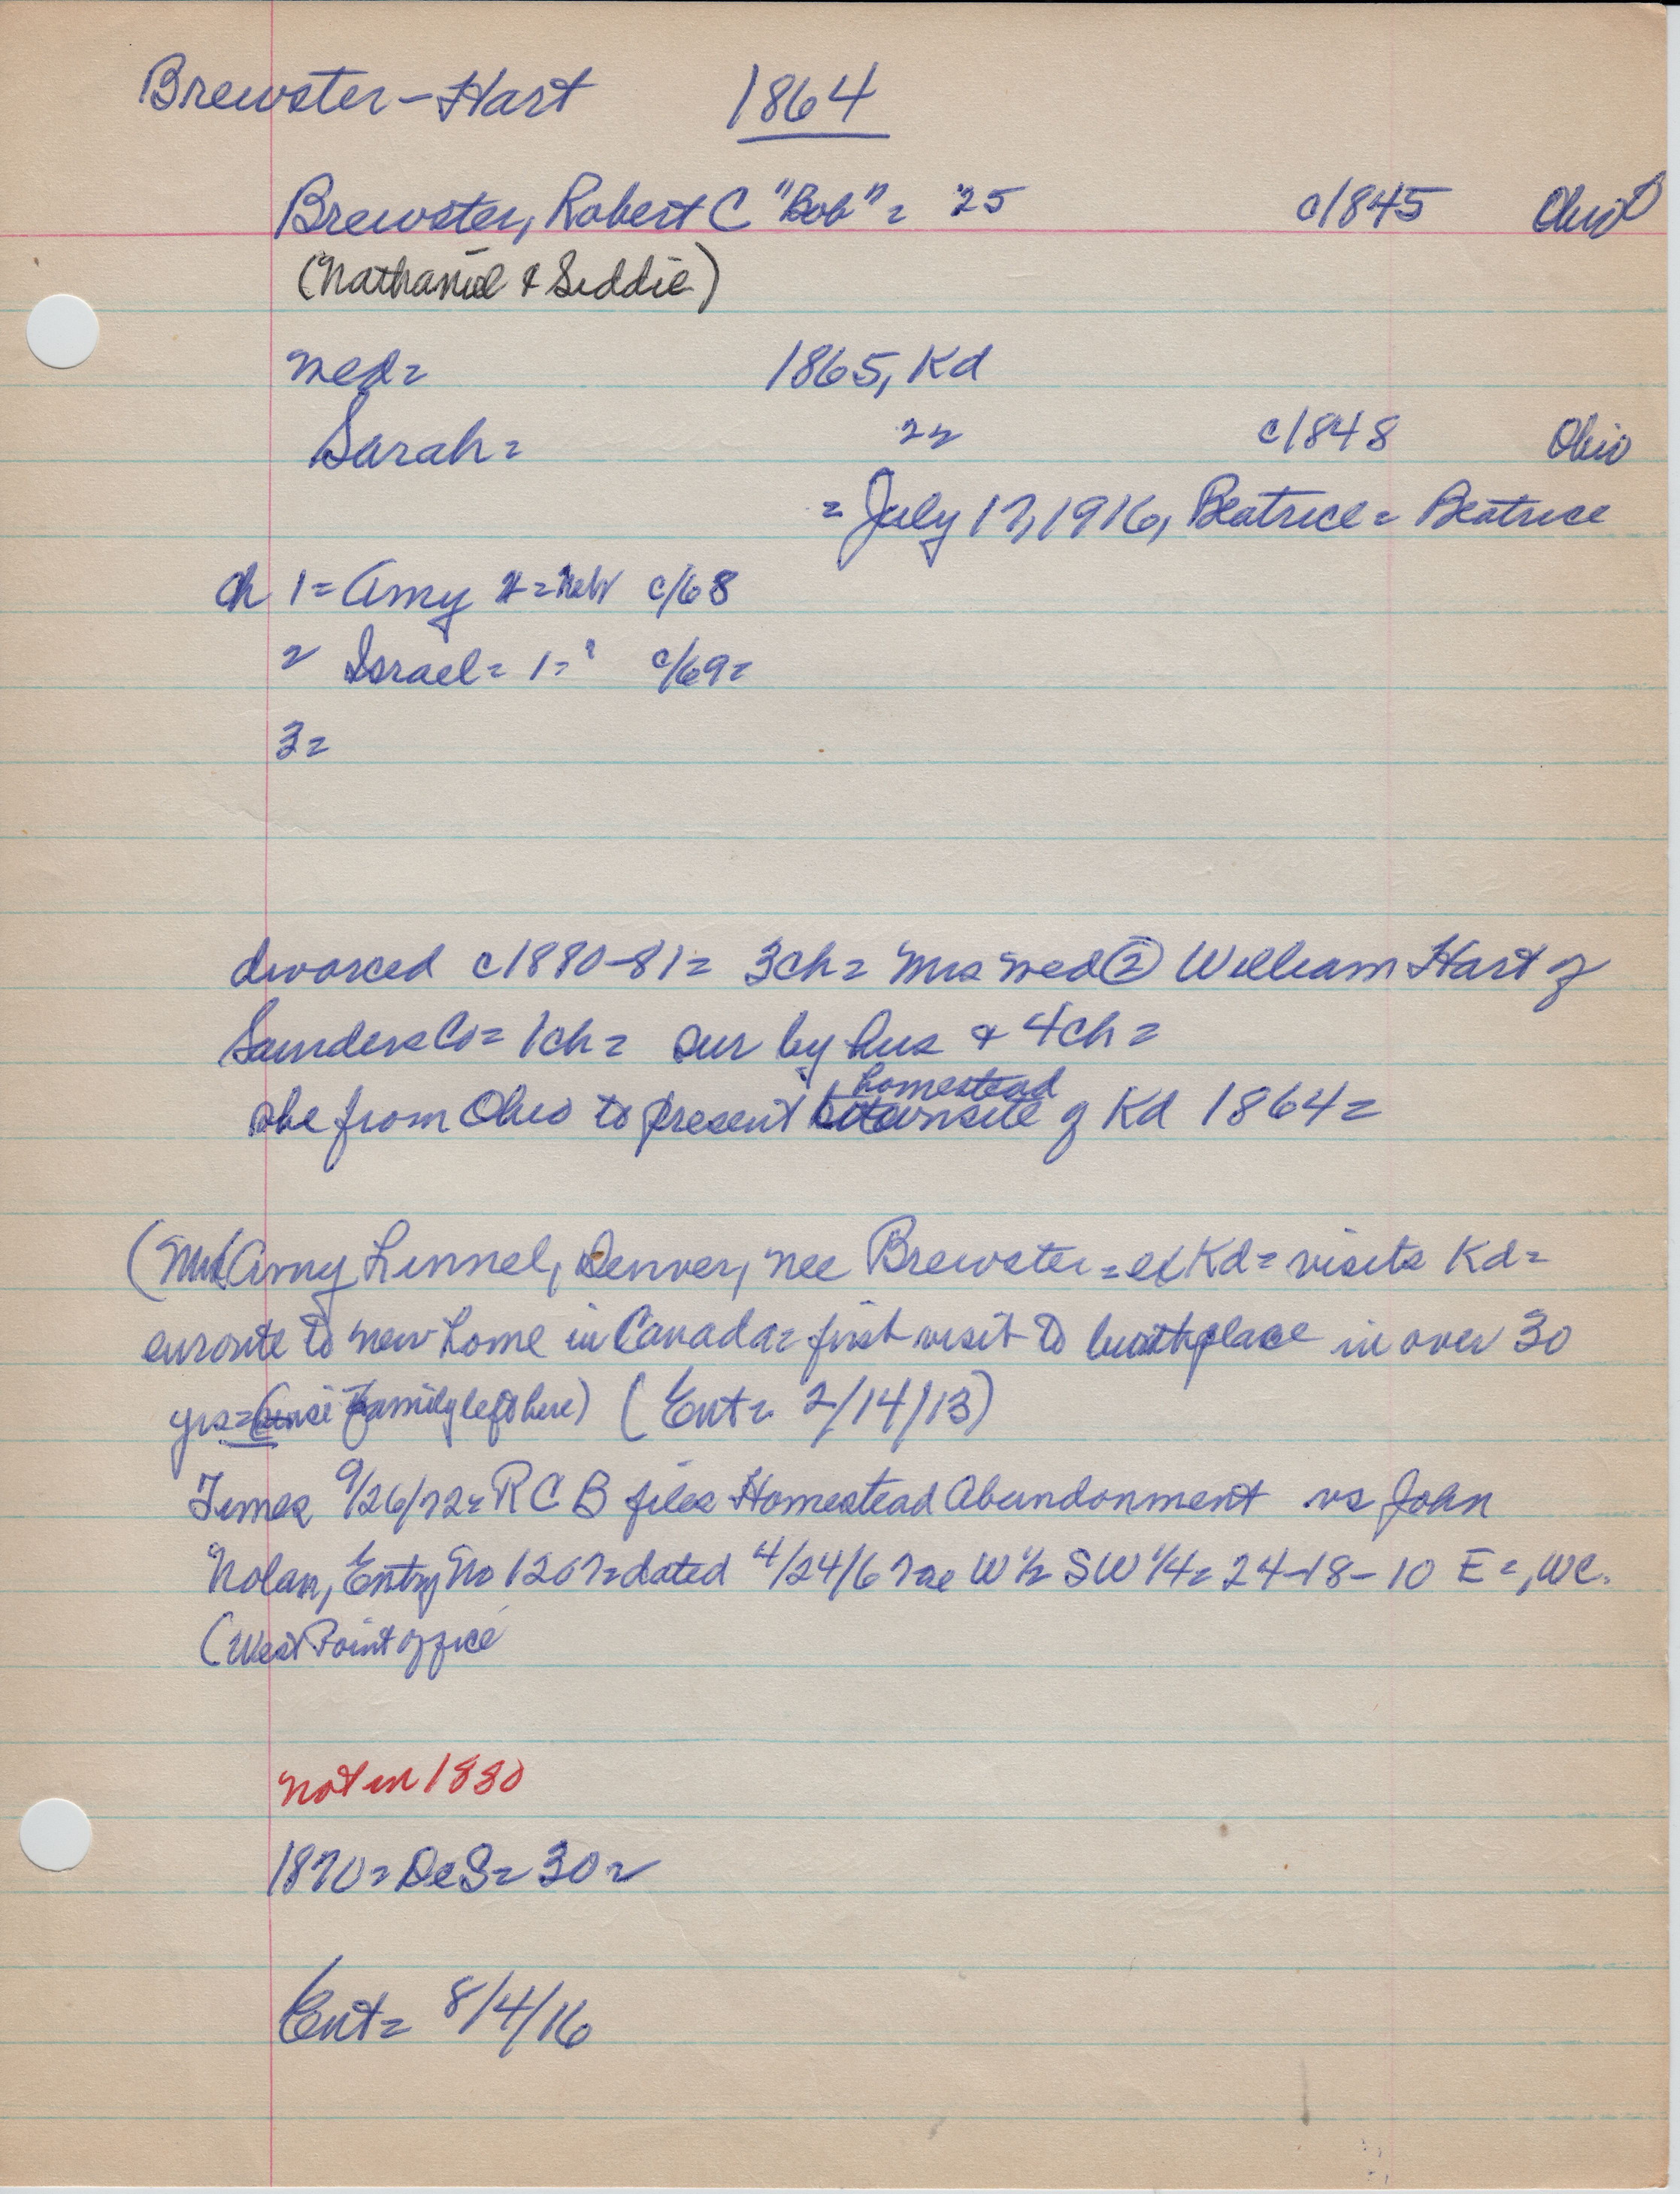 Brewster-Hart 1864
Brewster, Robert C "Bob" = 25 c1845 Ohio
(Nathaniel & Siddie)
med= 1865, Kd
Sarah= 22 c1848 Ohio
= July 17, 1916, Beatrice = Beatrice
ch 1= Amy 2= Neb c/68
2 Israel= 1=? c/69=
3=
divorced c1880-81= 3ch= Mrs med ② William Hart of
Saunders Co= 1ch= sur by hus & 4ch=
homestead
she from Ohio to present townsite of Kd 1864=
(Mrs Amy Linnel, Denver, nee Brewster = ex Kd= visits Kd=
enroute to new home in Canada= first visit to birthplace in over 30
yrs= (since family left here) (Ent= 2/14/13)
Times 9/26/72= R C B files Homestead Abandonment vs John
Nolan, Entry No 1207= dated 4/24/67 ae W 1/2 SW 1/4= 24-18-10 E=, WC.
(West Point office
not in 1880
1870= DeS= 30=
Ent= 8/4/16